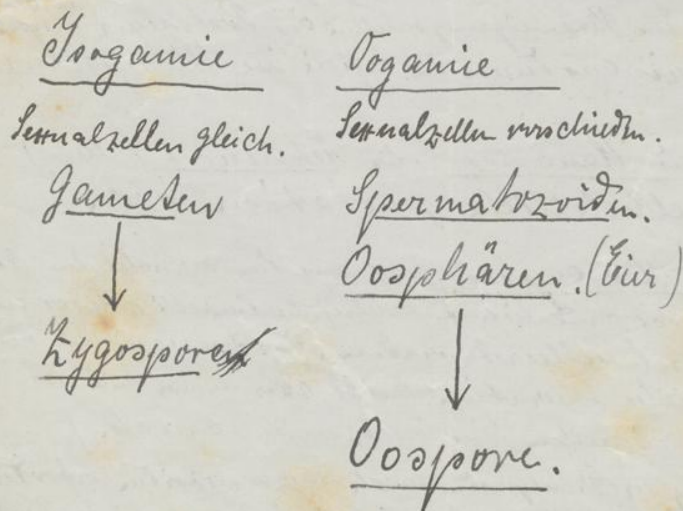 Isogamie
Sexualzellen gleich.
Gameten
Zygospore
Oogamie
Sexualzellen verschieden.
Spermatozoiden.
Oosphären. (Eier)
Oospore.